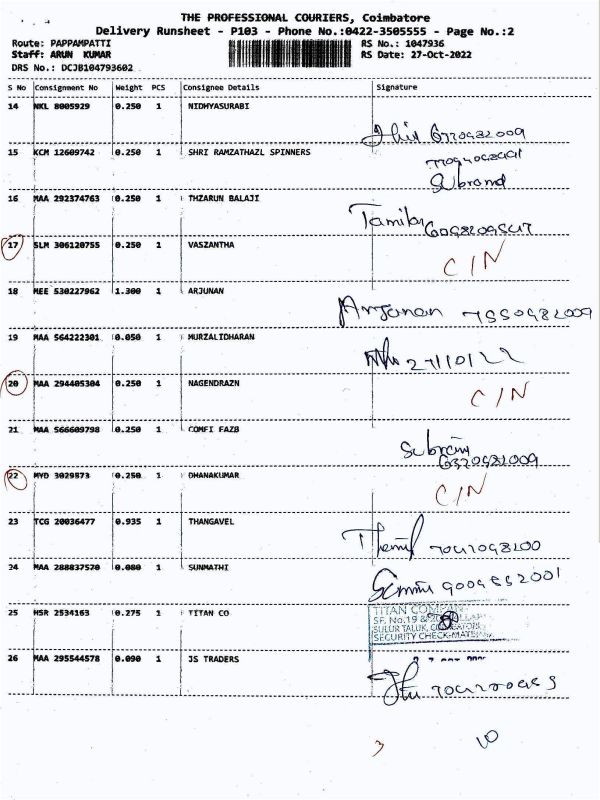 THE PROFESSIONAL COURIERS, Coimbatore
Delivery Runsheet - P103 - Phone No.:0422-3505555 - Page No.:2
Route: PAPPAMPATTI RS No.: 1047936
Staff: ARUN KUMAR RS Date: 27-Oct-2022
DRS No.: DCJB104793602
S No Consignment No Weight PCS Consignee Details Signature
14 NKL 8005929 0.250 1 NIDHYASURABI
15 KCM 12609742 0.250 1 SHRI RAMZATHAZL SPINNERS
16 MAA 292374763 0.250 1 THZARUN BALAJI
17 SLM 306120755 0.250 1 VASZANTHA
C/N
18 MEE 530227962 1.300 1 ARJUNAN
Arjunan
19 MAA 564222301 0.050 1 MURZALIDHARAN
27/10/22
20 MAA 294405304 0.250 1 NAGENDRAZN
C/N
21 MAA 566609798 0.250 1 COMFI FAZB
22 MYD 3029573 0.250 1 DHANAKUMAR
C/N
23 TCG 20036477 0.935 1 THANGAVEL
24 MAA 288837570 0.080 1 SUNMATHI
25 HSR 2534163 0.275 1 TITAN CO
TITAN COMPANY
SF. No.19 &
SULUR TALUK,
SECURITY CHECK-
26 MAA 295544578 0.090 1 JS TRADERS
3 10